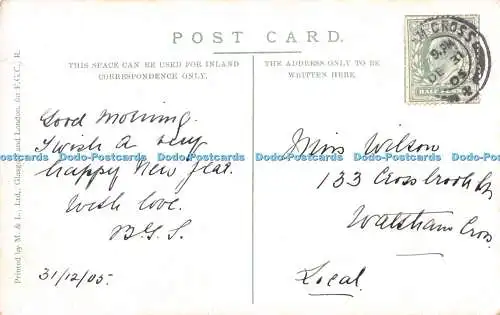 POST CARD.
THIS SPACE CAN BE USED FOR INLAND
CORRESPONDENCE ONLY.
THE ADDRESS ONLY TO BE
WRITTEN HERE.
Good Morning.
I wish a very
happy New Year.
With love.
B.G.S.
31/12/05.
Miss Wilson
133 Crossbrook St
Waltham Cross.
Local.
M CROSS
9 PM
DE 31
05
HALF PENNY
Printed by M. & L., Ltd., Glasgow and London, for F.G.C., R.
Dodo-Postcards Dodo-Postcards Dodo-Postcards Dodo-Postcards